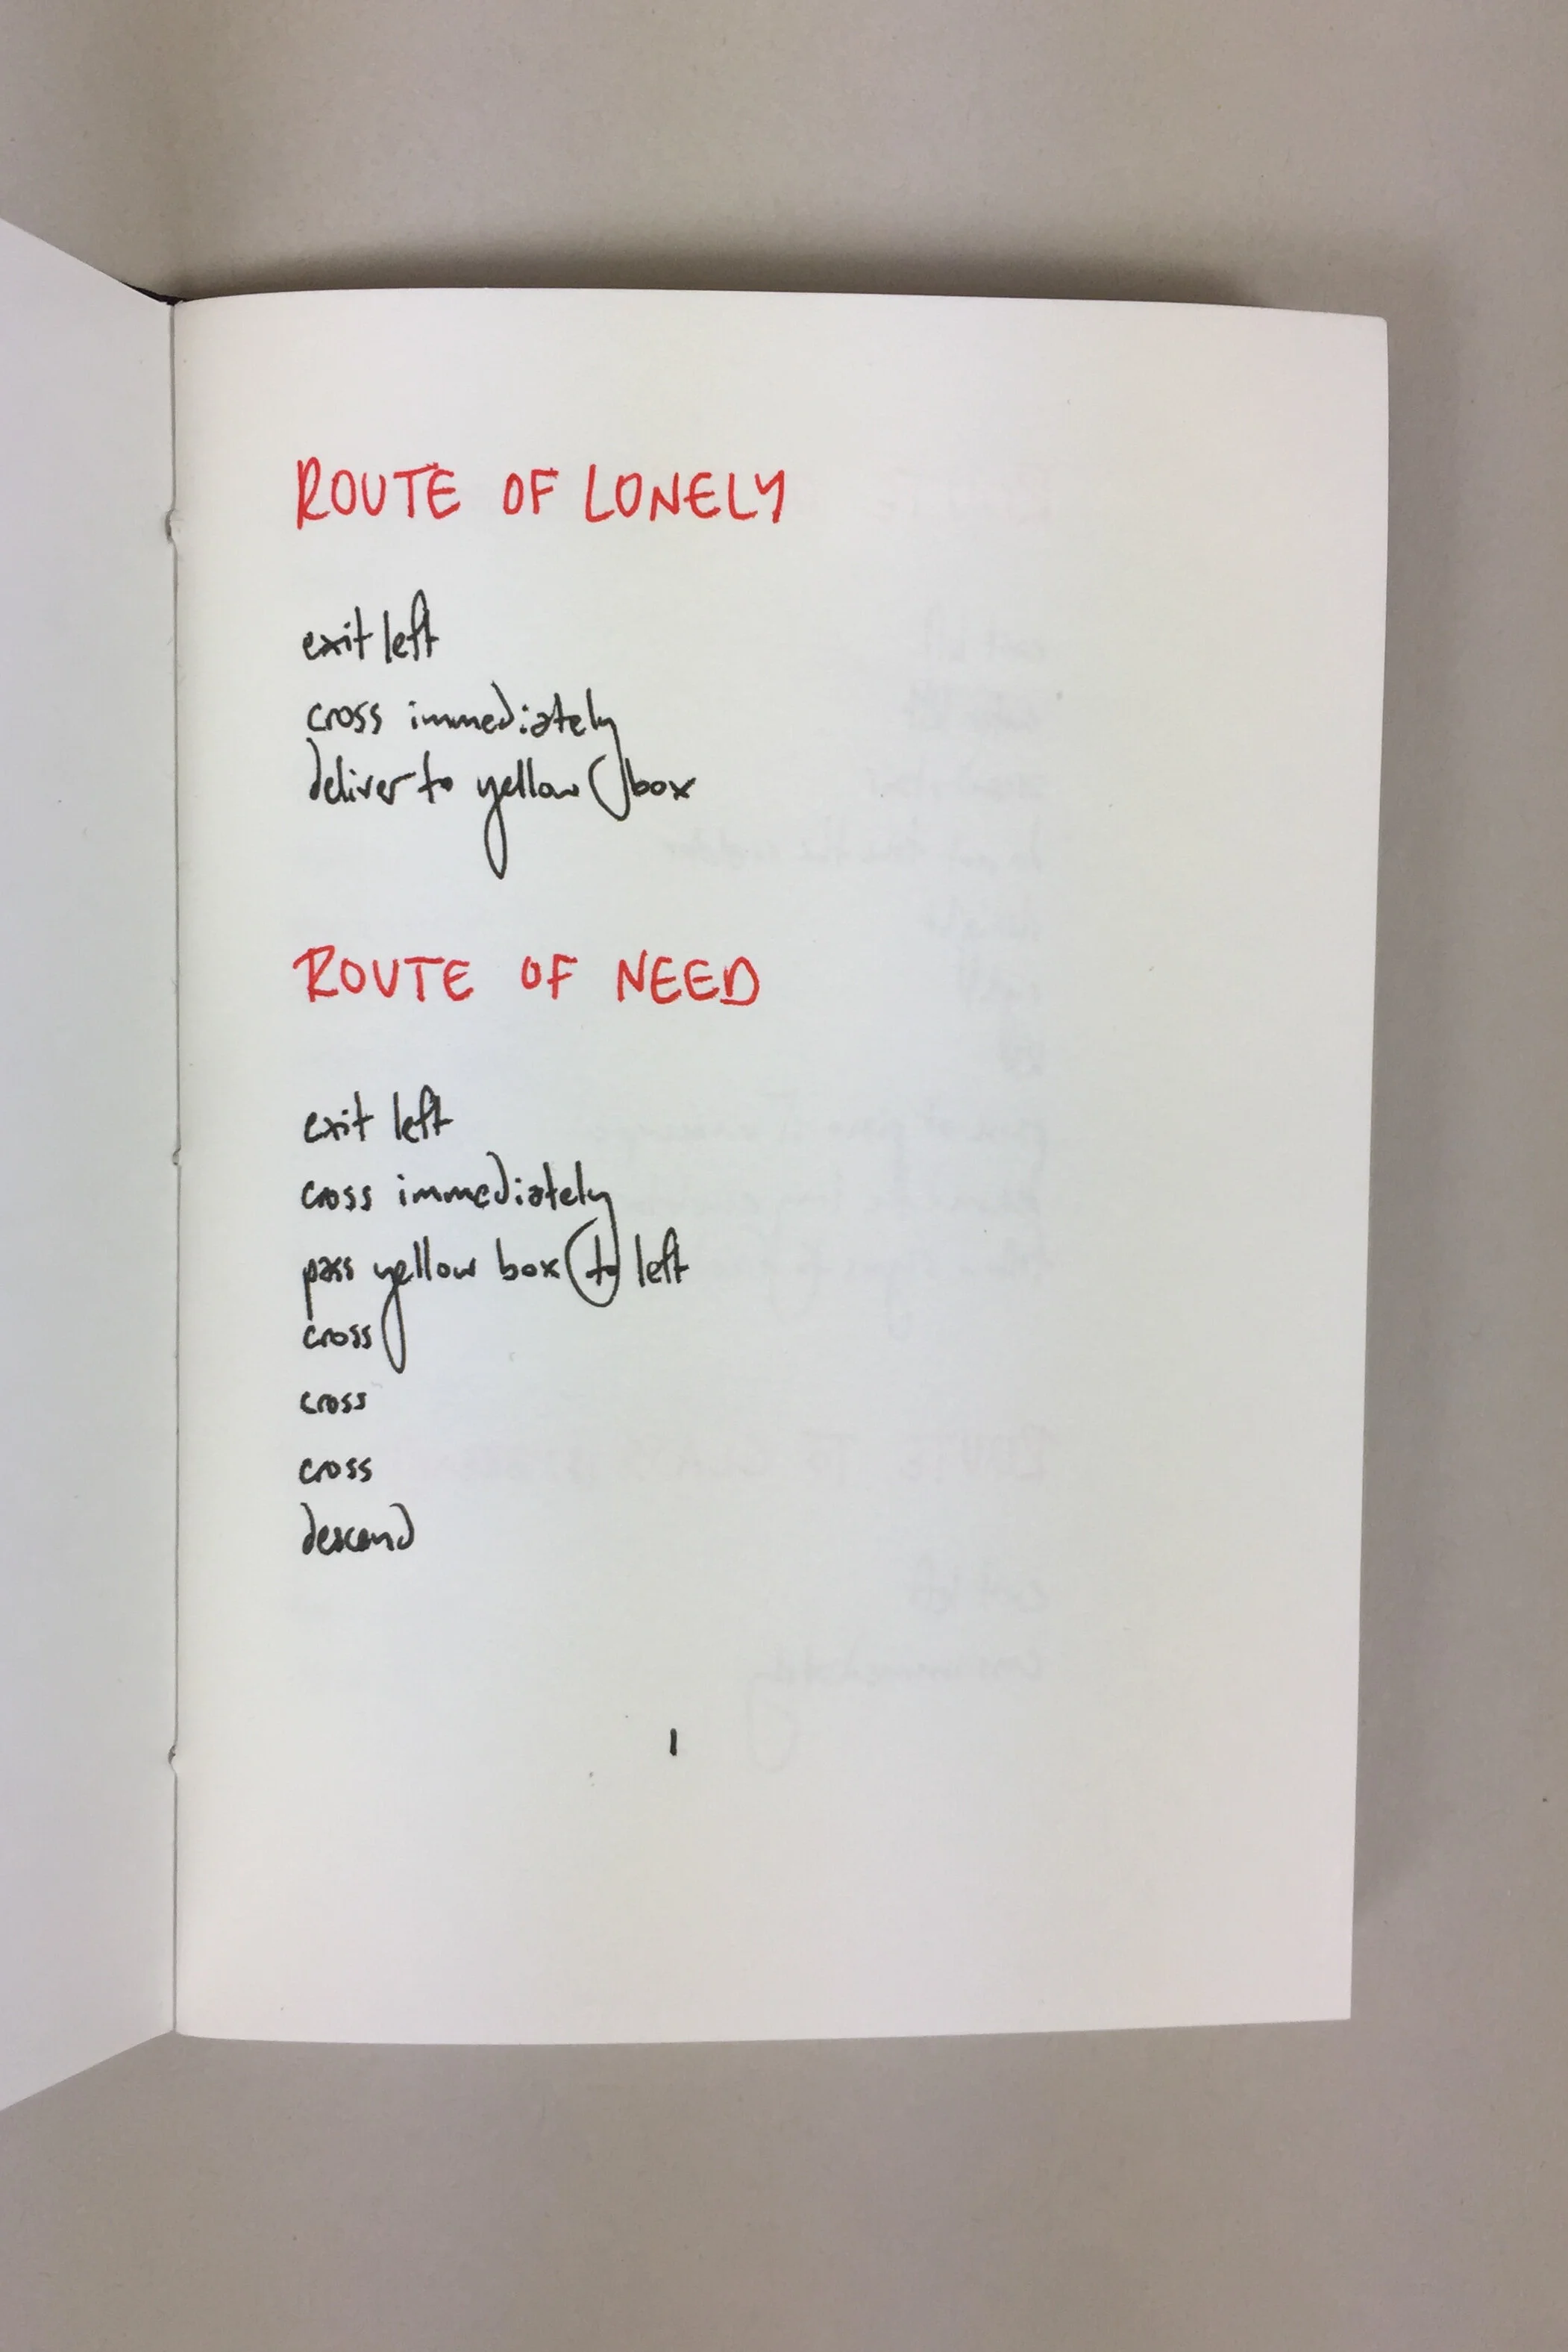 ROUTE OF LONELY
exit left
cross immediately
deliver to yellow box
ROUTE OF NEED
exit left
cross immediately
pass yellow box to left
cross
cross
cross
descend
1